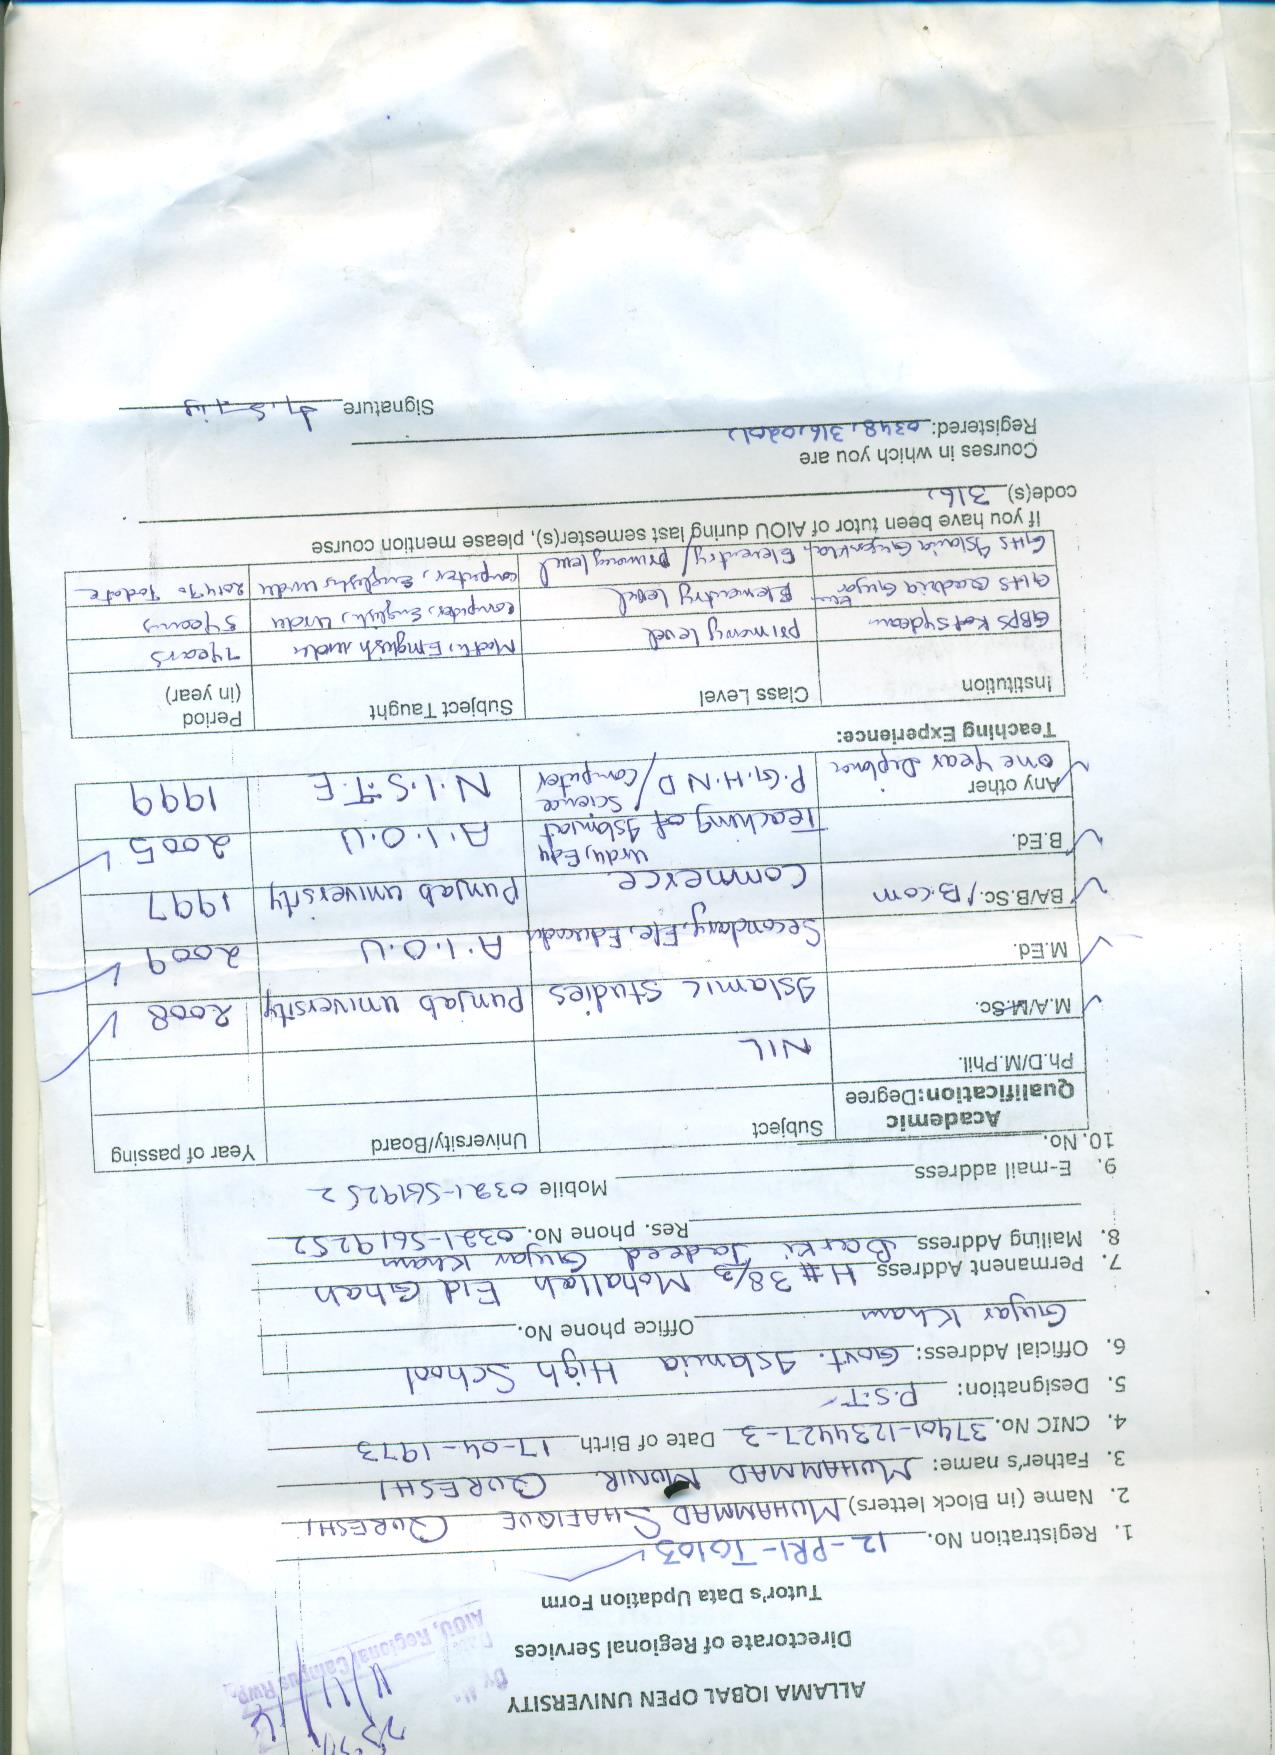 ALLAMA IQBAL OPEN UNIVERSITY
Directorate of Regional Services
Tutor's Data Updation Form
AIOU, Regional Campus Rwp.
1. Registration No. 12-PRI-TG103
2. Name (in Block letters) MUHAMMAD SHAFIQUE QURESHI
3. Father's name: MUHAMMAD MUNIR QURESHI
4. CNIC No. 37401-1234427-3 Date of Birth 17-04-1973
5. Designation: P.S.T
6. Official Address: Govt. Islamia High School
Gujar Khan Office phone No.
7. Permanent Address H# 38/3 Mohallah Eid Ghah
8. Mailing Address Barki Jadeed Gujar Khan
Res. phone No. 0321-5619252
9. E-mail address Mobile 0321-5619252
10. No.
Academic Qualification: Degree Subject University/Board Year of passing
Ph.D/M.Phil. NIL
M.A/M.Sc. Islamic Studies Punjab university 2008
M.Ed. Secondary, Ele, A.I.O.U 2009
BA/B.Sc. / B.Com Commerce Punjab university 1997
B.Ed. Teaching of Urdu, Edu Islamiat A.I.O.U 2005
Any other one year Diploma P.G.H.N.D / Science Computer N.I.S.T.E 1999
Teaching Experience:
Institution Class Level Subject Taught Period (in year)
GBPS Kot Sydean primary level Math, English urdu 7 years
GHS Qadria Gujar Elementry level Computer, English, Urdu 5 years
GHS Islamia Gujar Khan Elementry / primary level computer, English, urdu Todate
If you have been tutor of AIOU during last semester(s), please mention course
code(s) 316,
Courses in which you are
Registered: 0348, 316, 0201,
Signature